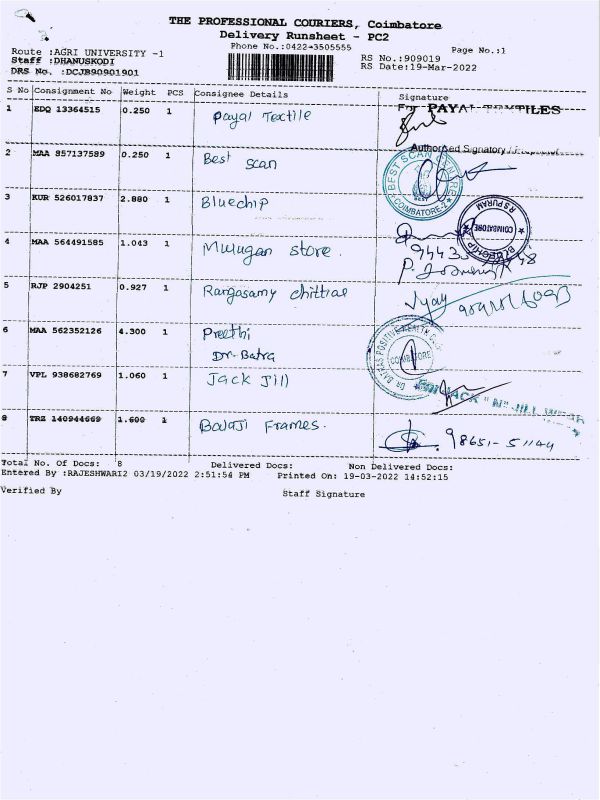 THE PROFESSIONAL COURIERS, Coimbatore
Delivery Runsheet - PC2
Phone No.:0422-3505555
Page No.:1
Route :AGRI UNIVERSITY -1
RS No.:909019
Staff :DHANUSKODI
RS Date:19-Mar-2022
DRS No. :DCJB90901901
S No Consignment No Weight PCS Consignee Details Signature
1 EDQ 13364515 0.250 1 Payal Textile
For PAYAL TEXTILES
Authorised Signatory
2 MAA 957137589 0.250 1 Best Scan
BEST SCAN CENTRE
BEST
COIMBATORE-2
3 KUR 526017837 2.880 1 Bluechip
BLUECHIP
COIMBATORE
R S PURAM
4 MAA 564491585 1.043 1 Murugan store.
5 RJP 2904251 0.927 1 Rangasamy chittiar
Vijay
6 MAA 562352126 4.300 1 Preethi
Dr. Batra
DR BATRAS POSITIVE HEALTH
COIMBATORE
7 VPL 938682769 1.060 1 Jack Jill
For JACK "N" JILL
8 TRZ 140944669 1.600 1 Balaji Frames.
98651-51144
Total No. Of Docs: 8 Delivered Docs: Non Delivered Docs:
Entered By :RAJESHWARI2 03/19/2022 2:51:54 PM Printed On: 19-03-2022 14:52:15
Verified By Staff Signature